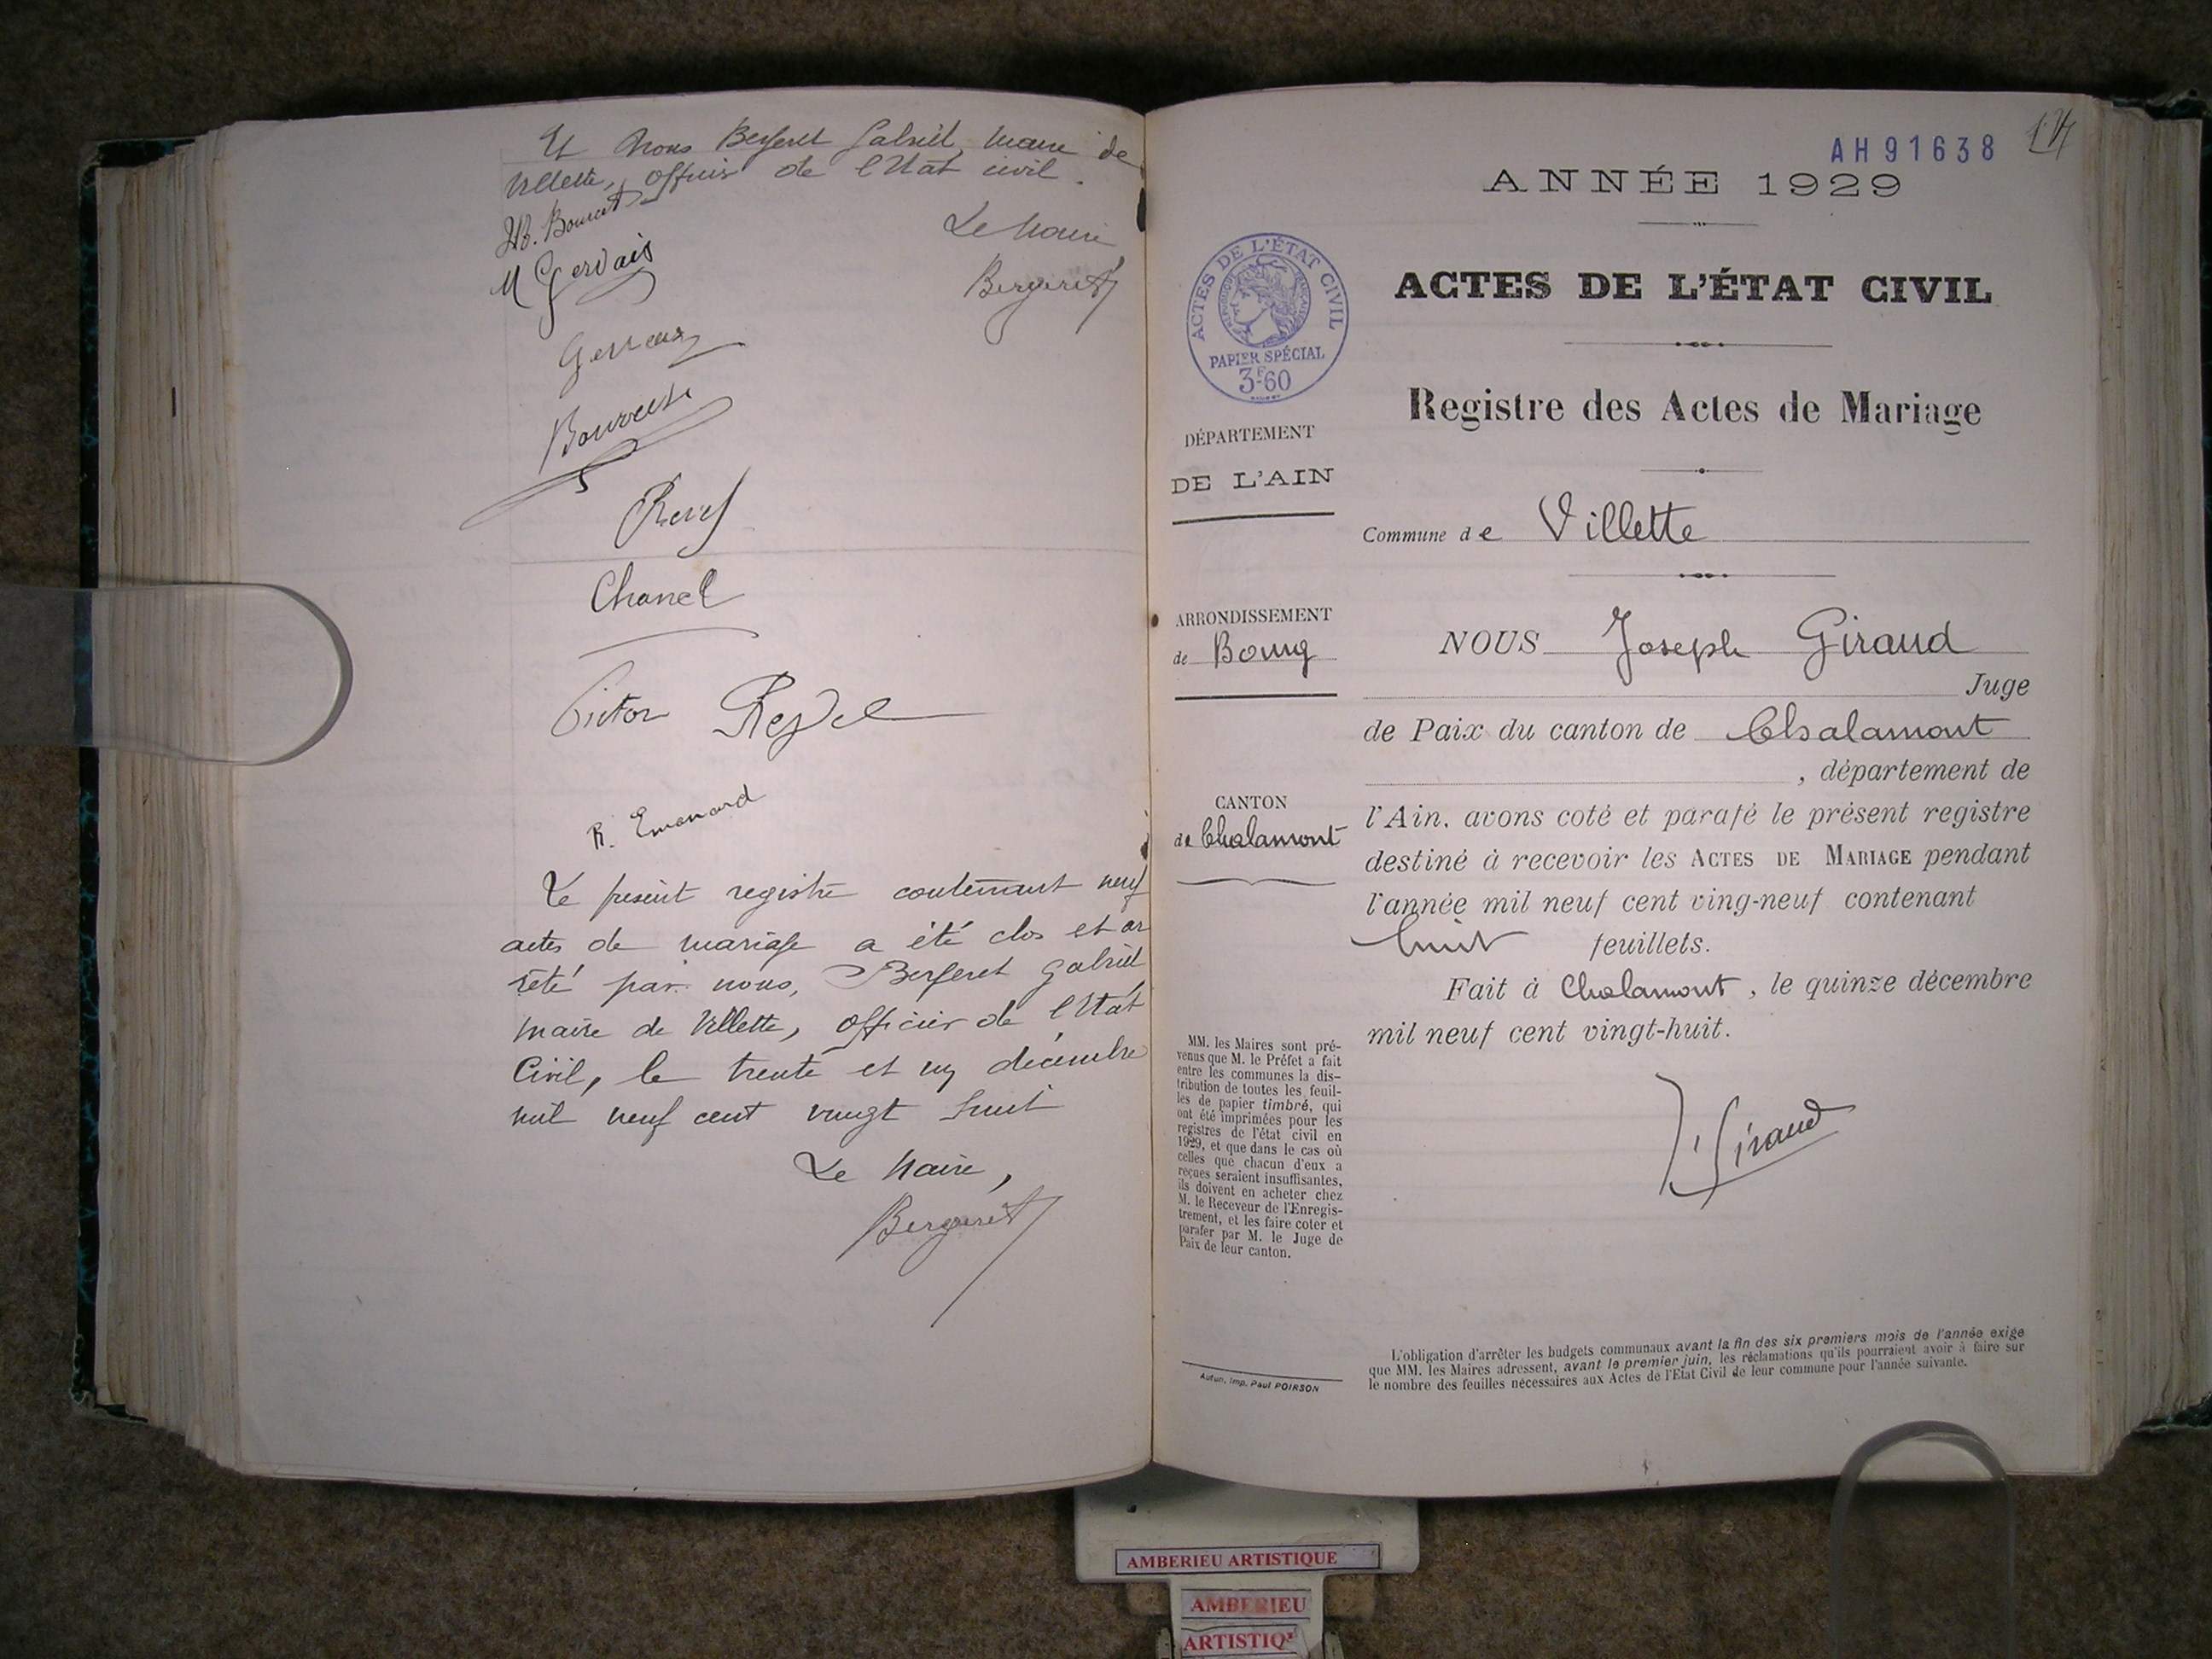 Et Nous Bergeret Gabriel, Maire de
Villette, officier de l'Etat civil.
Le Maire
Bergeret
M Gervais
Chanel
Victor Revel
R. Emonard
Le présent registre contenant neuf
actes de mariage a été clos et ar
rêté par nous, Bergeret Gabriel
maire de Villette, officier de l'Etat
Civil, le trente et un décembre
mil neuf cent vingt huit
Le Maire,
Bergeret
AH 91638
ANNÉE 1929
ACTES DE L'ÉTAT CIVIL
Registre des Actes de Mariage
ACTES DE L'ÉTAT CIVIL
RÉPUBLIQUE FRANÇAISE
PAPIER SPÉCIAL
3F60
DÉPARTEMENT
DE L'AIN
ARRONDISSEMENT
de Bourg
CANTON
de Chalamont
Commune de Villette
NOUS Joseph Giraud
Juge
de Paix du canton de Chalamont
, département de
l'Ain, avons coté et parafé le présent registre
destiné à recevoir les ACTES DE MARIAGE pendant
l'année mil neuf cent ving-neuf contenant
huit feuillets.
Fait à Chalamont, le quinze décembre
mil neuf cent vingt-huit.
J. Giraud
MM. les Maires sont pré-
venus que M. le Préfet a fait
entre les communes la dis-
tribution de toutes les feuil-
les de papier timbré, qui
ont été imprimées pour les
registres de l'état civil en
1929, et que dans le cas où
celles que chacun d'eux a
reçues seraient insuffisantes,
ils doivent en acheter chez
M. le Receveur de l'Enregis-
trement, et les faire coter et
parafer par M. le Juge de
Paix de leur canton.
Autun, Imp. Paul POIRSON
L'obligation d'arrêter les budgets communaux avant la fin des six premiers mois de l'année exige
que MM. les Maires adressent, avant le premier juin, les réclamations qu'ils pourraient avoir à faire sur
le nombre des feuilles nécessaires aux Actes de l'Etat Civil de leur commune pour l'année suivante.
AMBERIEU ARTISTIQUE
AMBERIEU
ARTISTIQ